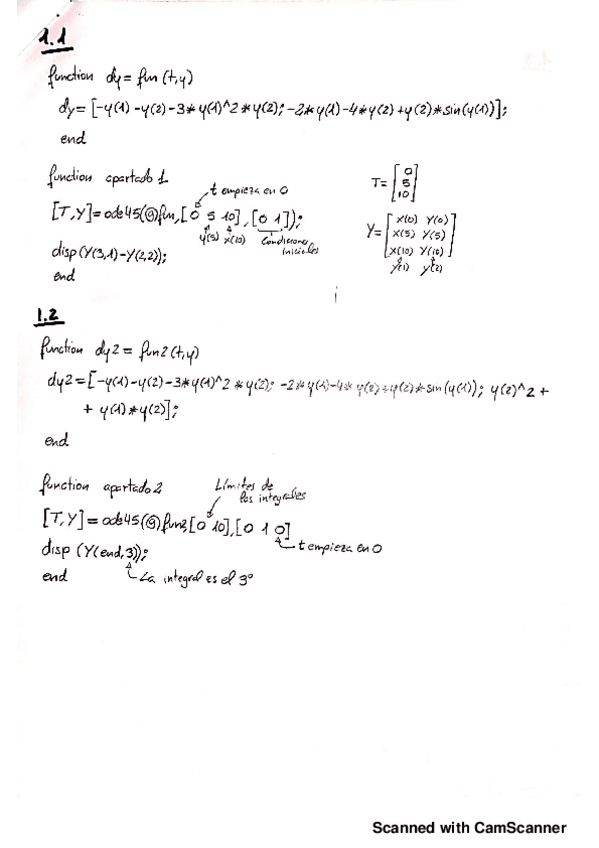 1.1
function dy = fun (t,y)
dy = [-y(1) -y(2) -3*y(1)^2*y(2); -2*y(1)-4*y(2)+y(2)*sin(y(1))];
end
function apartado1
t empieza en 0
[T,Y]=ode45(@fun,[0 5 10],[0 1]);
y(5) x(10) Condiciones iniciales
disp(Y(3,1)-Y(2,2));
end
T=[0
5
10]
Y=[x(0) y(0)
x(5) y(5)
x(10) y(10)]
y(1) y(2)
1.2
function dy2 = fun2(t,y)
dy2=[-y(1)-y(2)-3*y(1)^2*y(2); -2*y(1)-4*y(2)+y(2)*sin(y(1)); y(2)^2 +
+ y(1)*y(2)];
end
function apartado2
Límites de
las integrales
[T,Y]=ode45(@fun2,[0 10],[0 1 0]
t empieza en 0
disp (Y(end,3));
end
La integral es el 3º
Scanned with CamScanner